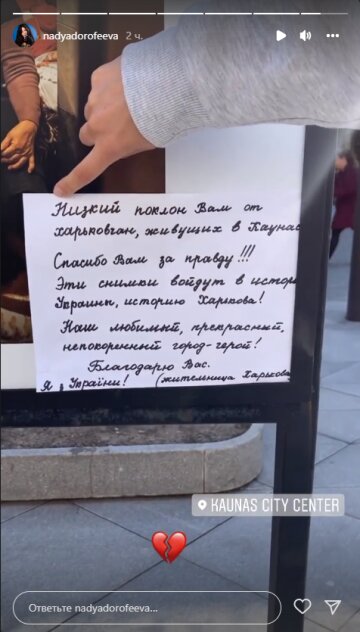 nadyadorofeeva 2 ч.
Низкий поклон Вам от
харьковчан, живущих в Каунас
Спасибо Вам за правду!!!
Эти снимки войдут в истор
Украины, историю Харькова!
Наш любимый, прекрасный,
непокоренный город-герой!
Благодарю Вас.
Я з України! (жительница Харькова
KAUNAS CITY CENTER
Ответьте nadyadorofeeva...